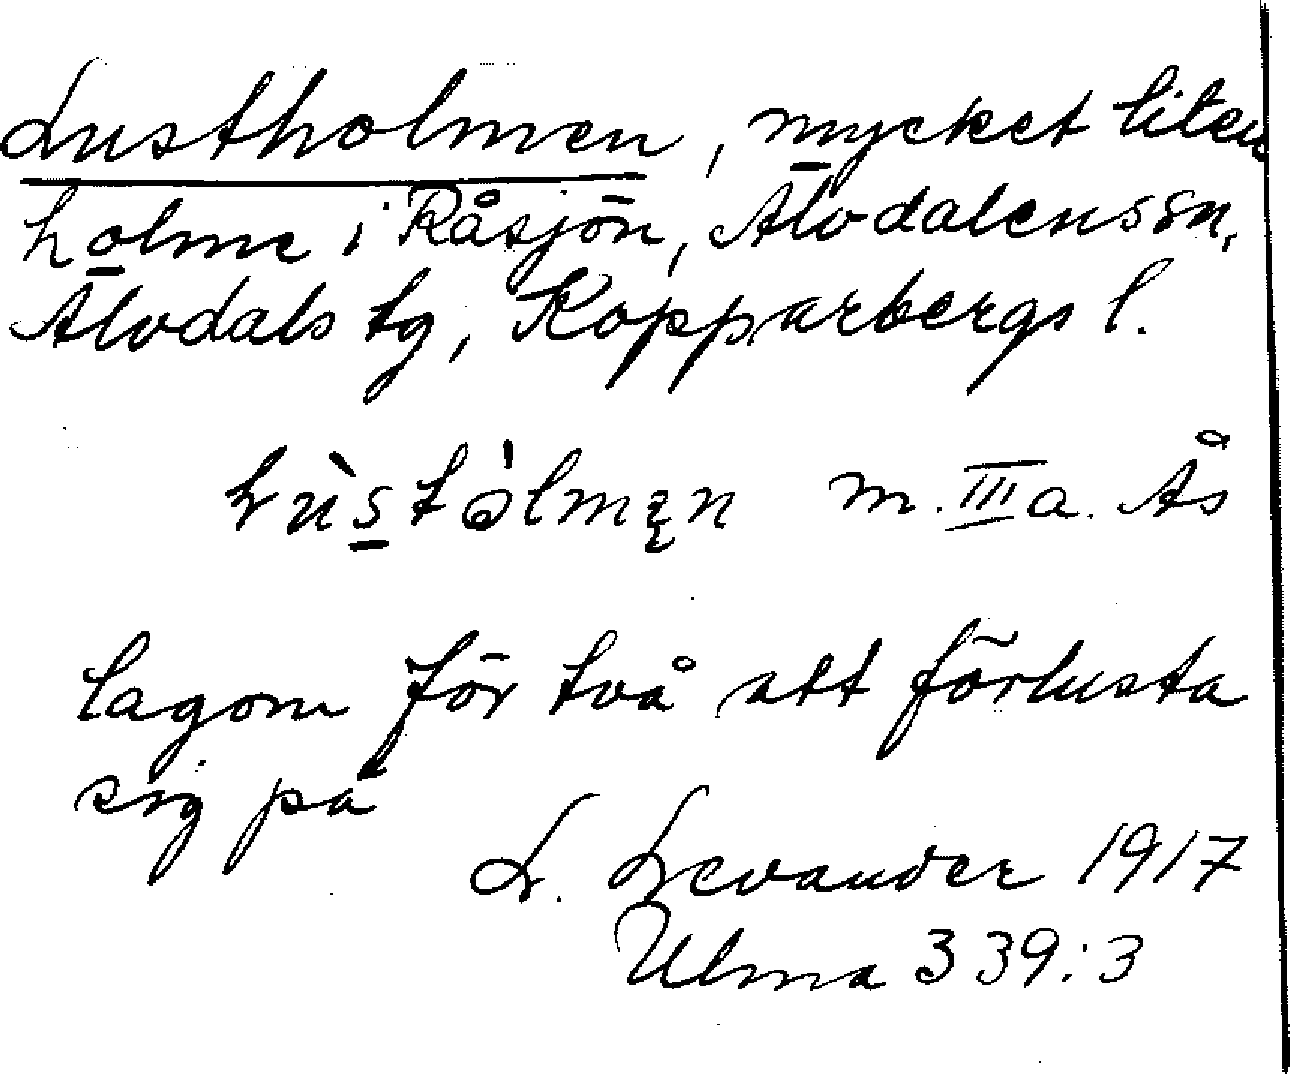 Lustholmen, mycket liten
holme i Råsjön, Älvdalens sn,
Älvdals tg, Kopparbergs l.
m. III a. Ås
lagom för två att förlusta
sig på
L. Levander 1917
Ulma 339:3